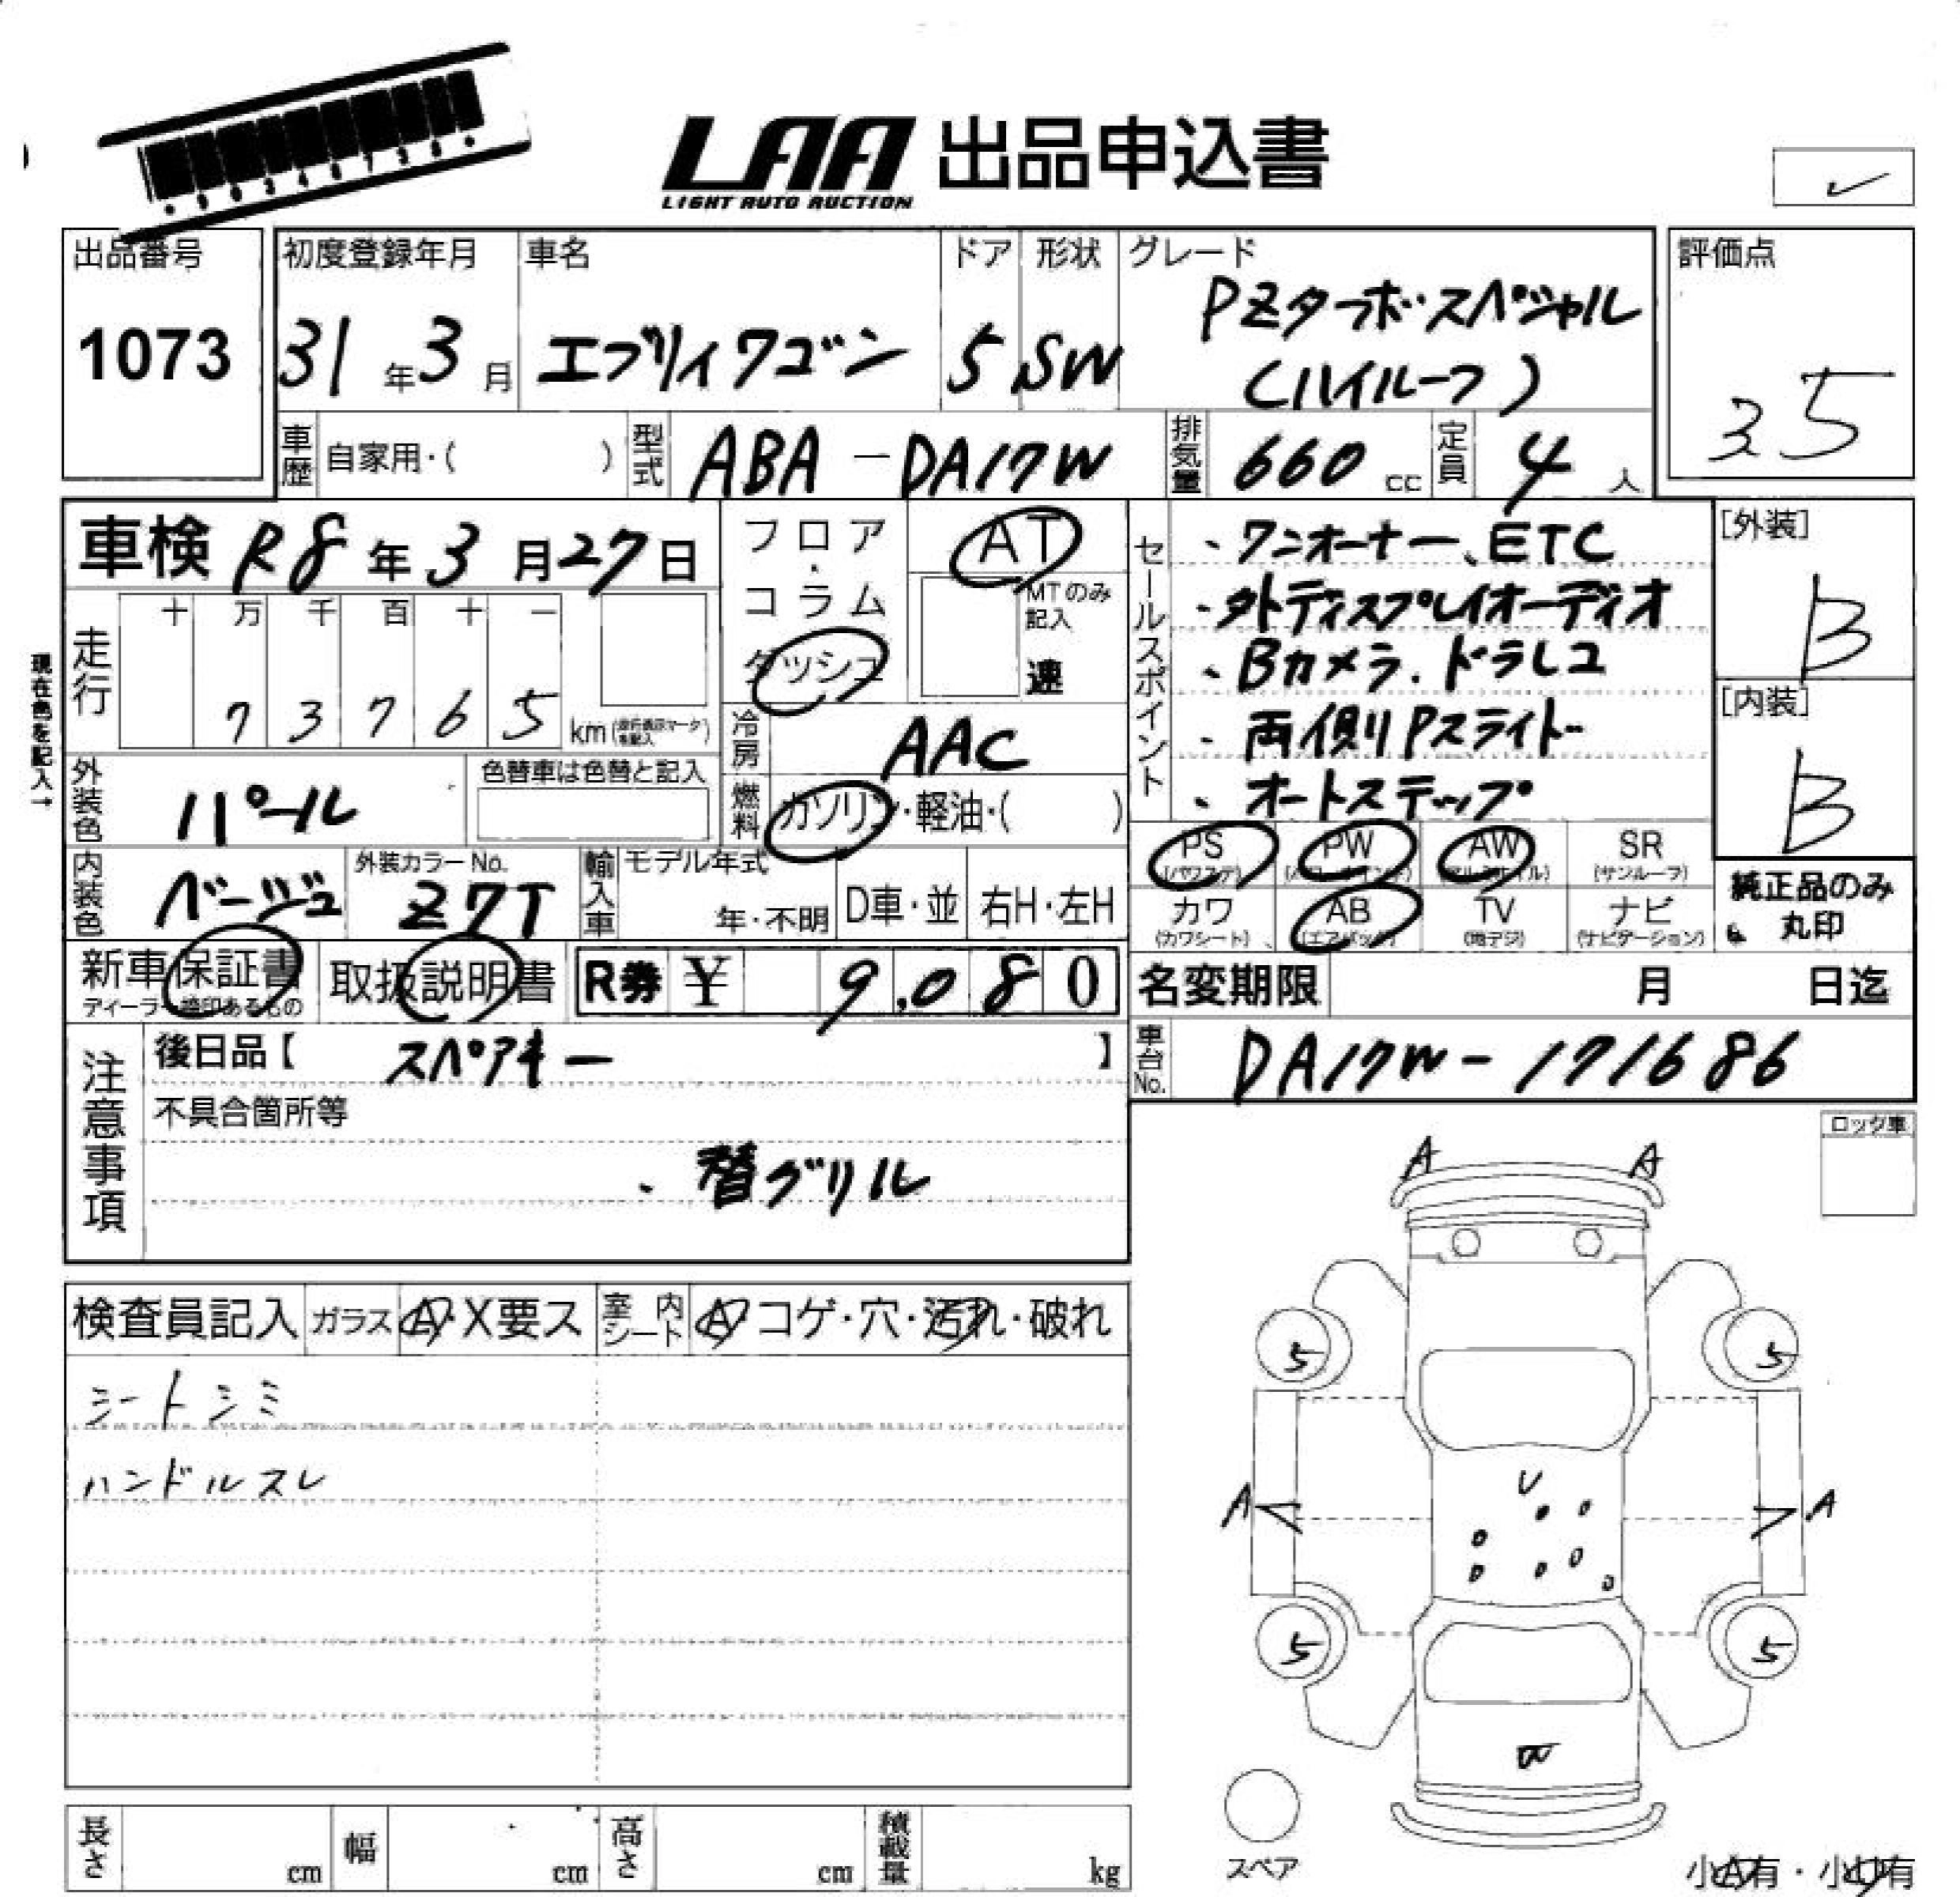 LAA 出品申込書
LIGHT AUTO AUCTION
出品番号 初度登録年月 車名 ドア 形状 グレード 評価点
1073 31年3月 エブリイワゴン 5 SW PZターボスペシャル
(ハイルーフ) 3 5
車歴 自家用・( ) 型式 ABA-DA17W 排気量 660cc 定員 4人
車検 R8年3月27日 フロア・コラム ダッシュ AT
MTのみ記入 速
走行 十 万 千 百 十 一
7 3 7 6 5 km
現在色を記入→
冷房 AAC
外装色 パール 色替車は色替と記入 燃料 ガソリン・軽油・( )
内装色 ベージュ 外装カラーNo. Z7T 輸入車 モデル年式 年・不明 D車・並 右H・左H
セールスポイント
・ワンオーナー、ETC
・外ディスプレイオーディオ
・Bカメラ.ドラレコ
・両側Pスライド
・オートステップ
[外装] B
[内装] B
PS (パワステ) PW (パワーウインドウ) AW (アルミホイル) SR (サンルーフ)
カワ (カワシート) AB (エアバッグ) TV (地デジ) ナビ (ナビゲーション)
純正品のみ
丸印
新車保証書 取扱説明書 R券 ¥ 9,080 名変期限 月 日迄
ディーラー捺印あるもの
車台No. DA17W-171686
注意事項
後日品【 スペアキー 】
不具合箇所等
・替グリル
ロック車
検査員記入 ガラス A・X要ス 室内シート A・コゲ・穴・汚れ・破れ
シートシミ
ハンドルスレ
A A
5 5
U
A A
5 5
スペア
小A有・小U有
長さ cm 幅 cm 高さ cm 積載量 kg